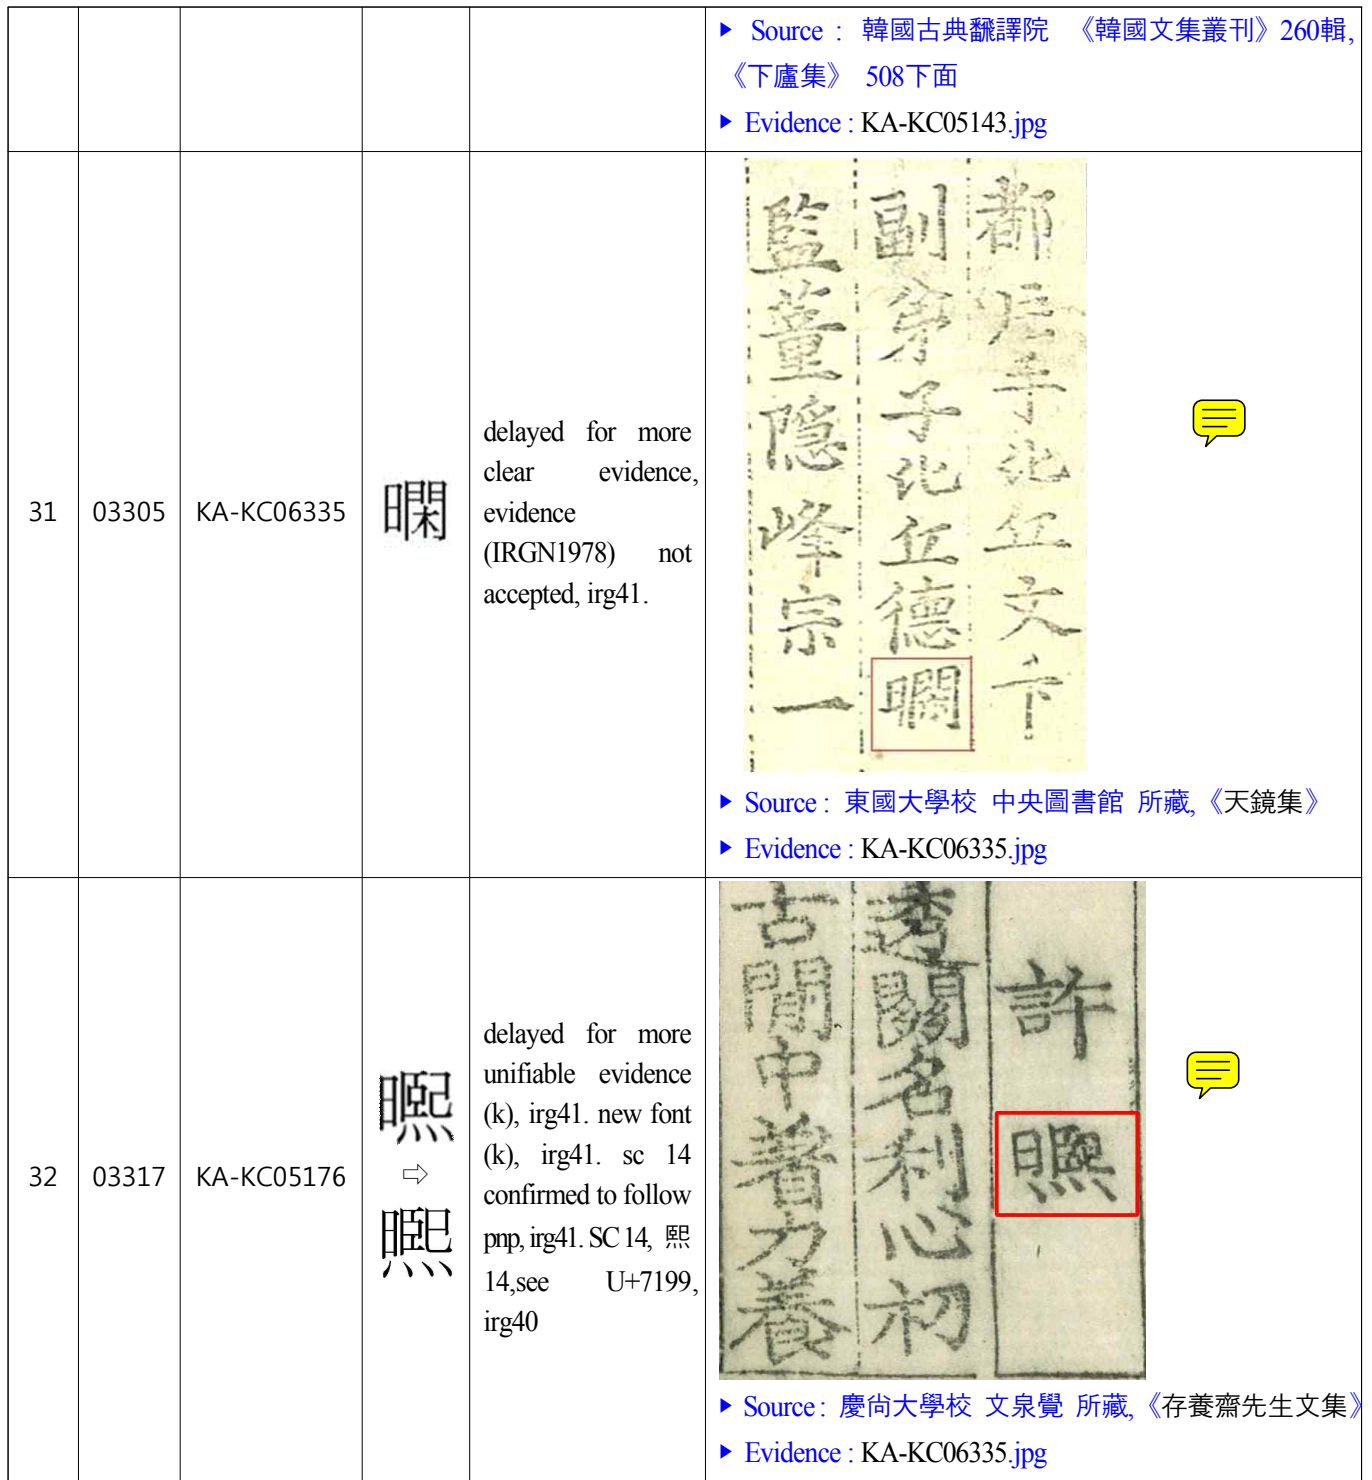 ▶ Source : 韓國古典飜譯院 《韓國文集叢刊》260輯,
《下廬集》 508下面
▶ Evidence : KA-KC05143.jpg
31
03305
KA-KC06335
delayed for more
clear evidence,
evidence
(IRGN1978) not
accepted, irg41.
都片手比丘文卞
副弟子比丘德
監董隱峰宗一
▶ Source : 東國大學校 中央圖書館 所藏,《天鏡集》
▶ Evidence : KA-KC06335.jpg
32
03317
KA-KC05176
⇨
delayed for more
unifiable evidence
(k), irg41. new font
(k), irg41. sc 14
confirmed to follow
pnp, irg41. SC 14, 熙
14,see U+7199,
irg40
許
透關名利心初
古閒中着力養
▶ Source : 慶尙大學校 文泉覺 所藏,《存養齋先生文集》
▶ Evidence : KA-KC06335.jpg